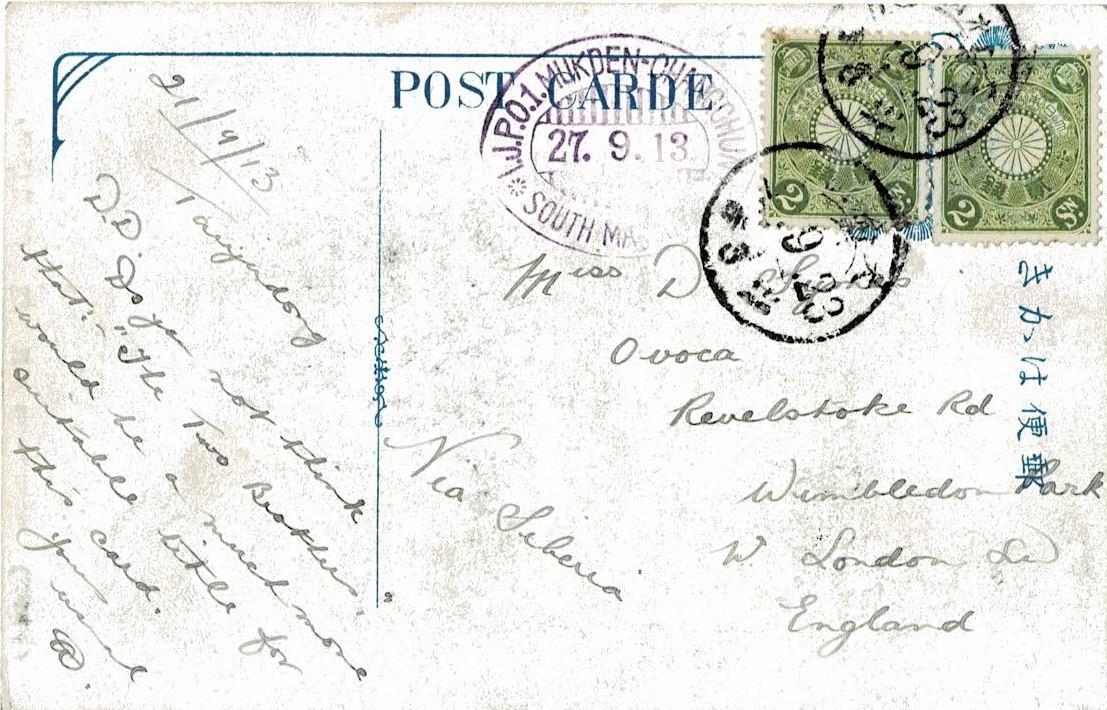 POST CARDE
I.J.P.O.1. MUKDEN-CHANGCHUN
27. 9. 13
SOUTH MA
2 SN.
2 SN.
きかは便郵
21/9/13
D.D. Do you not think
that "The Two Brothers"
would be a much more
suitable title for
this card.
Your usual
Miss D
Ovoca
Revelstoke Rd
Wimbledon Park
W London
England
Via Siberia